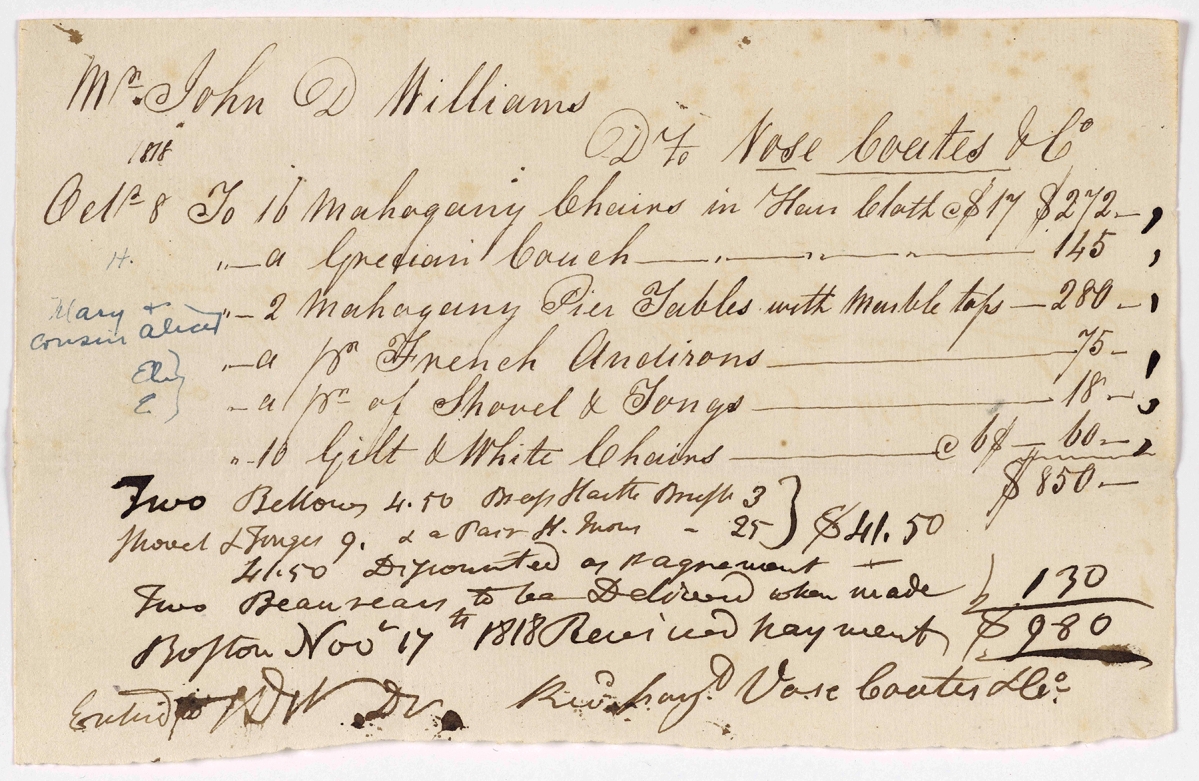 Mr. John D Williams
1818
Dr To Vose Coates & Co
Octr 8 To 16 Mahogany Chairs in Hair Cloth @ $17 $272–,
H. „—a Grecian Couch—„—„—„— 145,
Mary +
cousin Alice
„–2 Mahogany Pier Tables with Marble tops – 280–,
„–a pr French Andirons— 75–,
Eliz
E
„–a pr of Shovel & Tongs — 18–,
„–10 Gilt & White Chairs — @ 6$ – 60–,
$850–
Two Bellows 4.50 Brass Harth Brush 3
Shovel & Tonges 9. & a Pair H. Irons – 25 } $41.50
41.50 Discounted as pagrement –
Two Beaureaus to be Deliverd when made } 130
Boston Novr 17th 1818 Received payment $980
Entered JDW Dr.
Recd payt Vose Coates & Co.